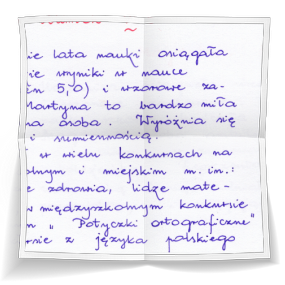 ie lata nauki osiągała
ie wyniki w nauce
5,0) i wzorowe za-
Martyna to bardzo miła
na osoba. Wyróżnia się
i sumiennością.
w wielu konkursach na
olnym i miejskim m. in.:
e zdrowia, lidze mate-
w międzyszkolnym konkursie
n " Potyczki ortograficzne"
rnie z języka polskiego